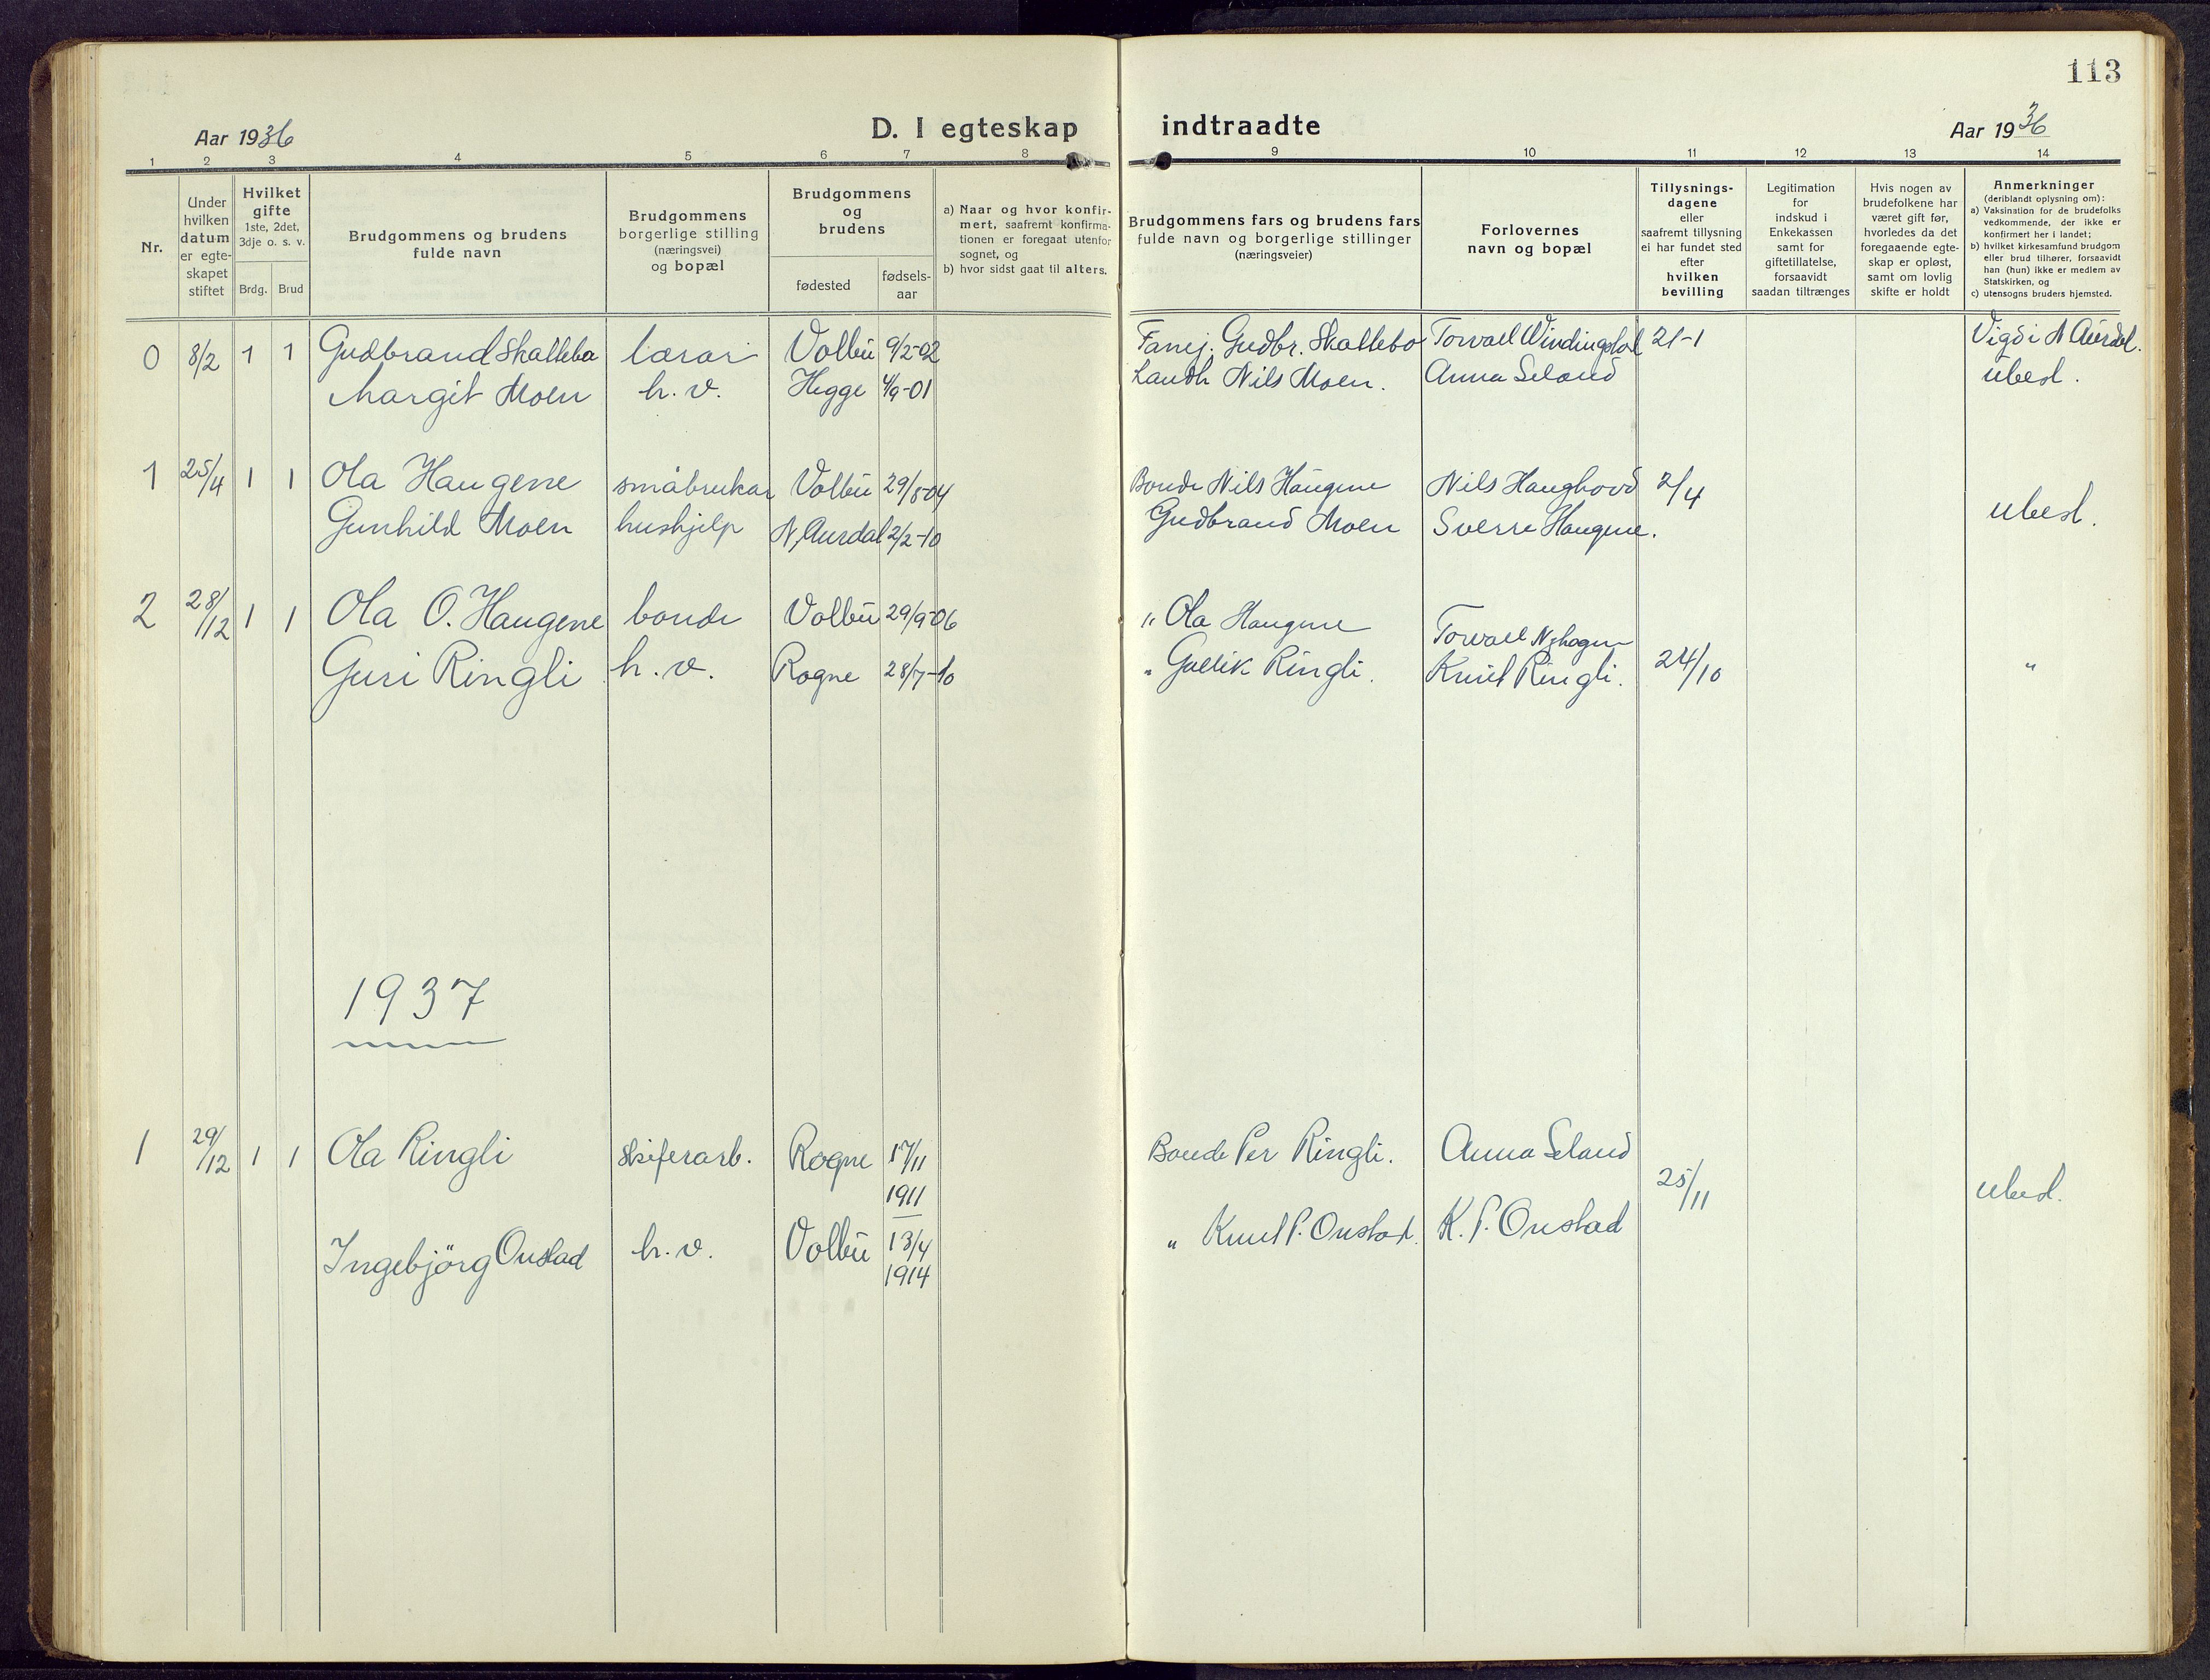 113
Aar 1936
D. I egteskap indtraadte
Aar 1936
1 2 3 4 5 6 7 8 9 10 11 12 13 14
Nr.
Under
hvilken
datum
er egte-
skapet
stiftet
Hvilket
gifte
1ste, 2det,
3dje o. s. v.
Brdg. Brud
Brudgommens og brudens
fulde navn
Brudgommens
borgerlige stilling
(næringsvei)
og bopæl
Brudgommens
og
brudens
fødested
fødsels-
aar
a) Naar og hvor konfir-
mert, saafremt konfirma-
tionen er foregaat utenfor
sognet, og
b) hvor sidst gaat til alters.
Brudgommens fars og brudens fars
fulde navn og borgerlige stillinger
(næringsveier)
Forlovernes
navn og bopæl
Tillysnings-
dagene
eller
saafremt tillysning
ei har fundet sted
efter
hvilken
bevilling
Legitimation
for
indskud i
Enkekassen
samt for
giftetillatelse,
forsaavidt
saadan tiltrænges
Hvis nogen av
brudefolkene har
været gift før,
hvorledes da det
foregaaende egte-
skap er opløst,
samt om lovlig
skifte er holdt
Anmerkninger
(deriblandt oplysning om):
a) Vaksination for de brudefolks
vedkommende, der ikke er
konfirmert her i landet;
b) hvilket kirkesamfund brudgom
eller brud tilhører, forsaavidt
han (hun) ikke er medlem av
Statskirken, og
c) utensogns bruders hjemsted.
0 8/2 1 1 Gudbrand Skallebo lærar Volbu 9/2-02 Gudbr. Skallebo Torvall Windingstad 21-1 Vigd i N Aurdal.
Margit Moen h. v. Hegge 4/9-01 Landh Nils Moen. Anna Seland ubesl.
1 25/4 1 1 Ola Haugene småbrukar Volbu 29/8-04 Bonde Nils Haugene Nils Haughovd 2/4
Gunhild Moen hushjelp N. Aurdal 2/2-10 Gudbrand Moen Sverre Haugene. ubesl.
2 28/12 1 1 Ola O. Haugene bonde Volbu 29/9-06 " Ola Haugene Torvall Nyhagen
Guri Ringli h. v. Rogne 28/7-10 " Gullik Ringli. Knut Ringli. 24/10 "
1937
1 29/12 1 1 Ola Ringli skiferarb. Rogne 17/11 Bonde Per Ringli. Anna Seland
1911 25/11 ubesl.
Ingebjörg Onstad h. v. Volbu 13/4 " Knut P. Onstad. K. P. Onstad
1914